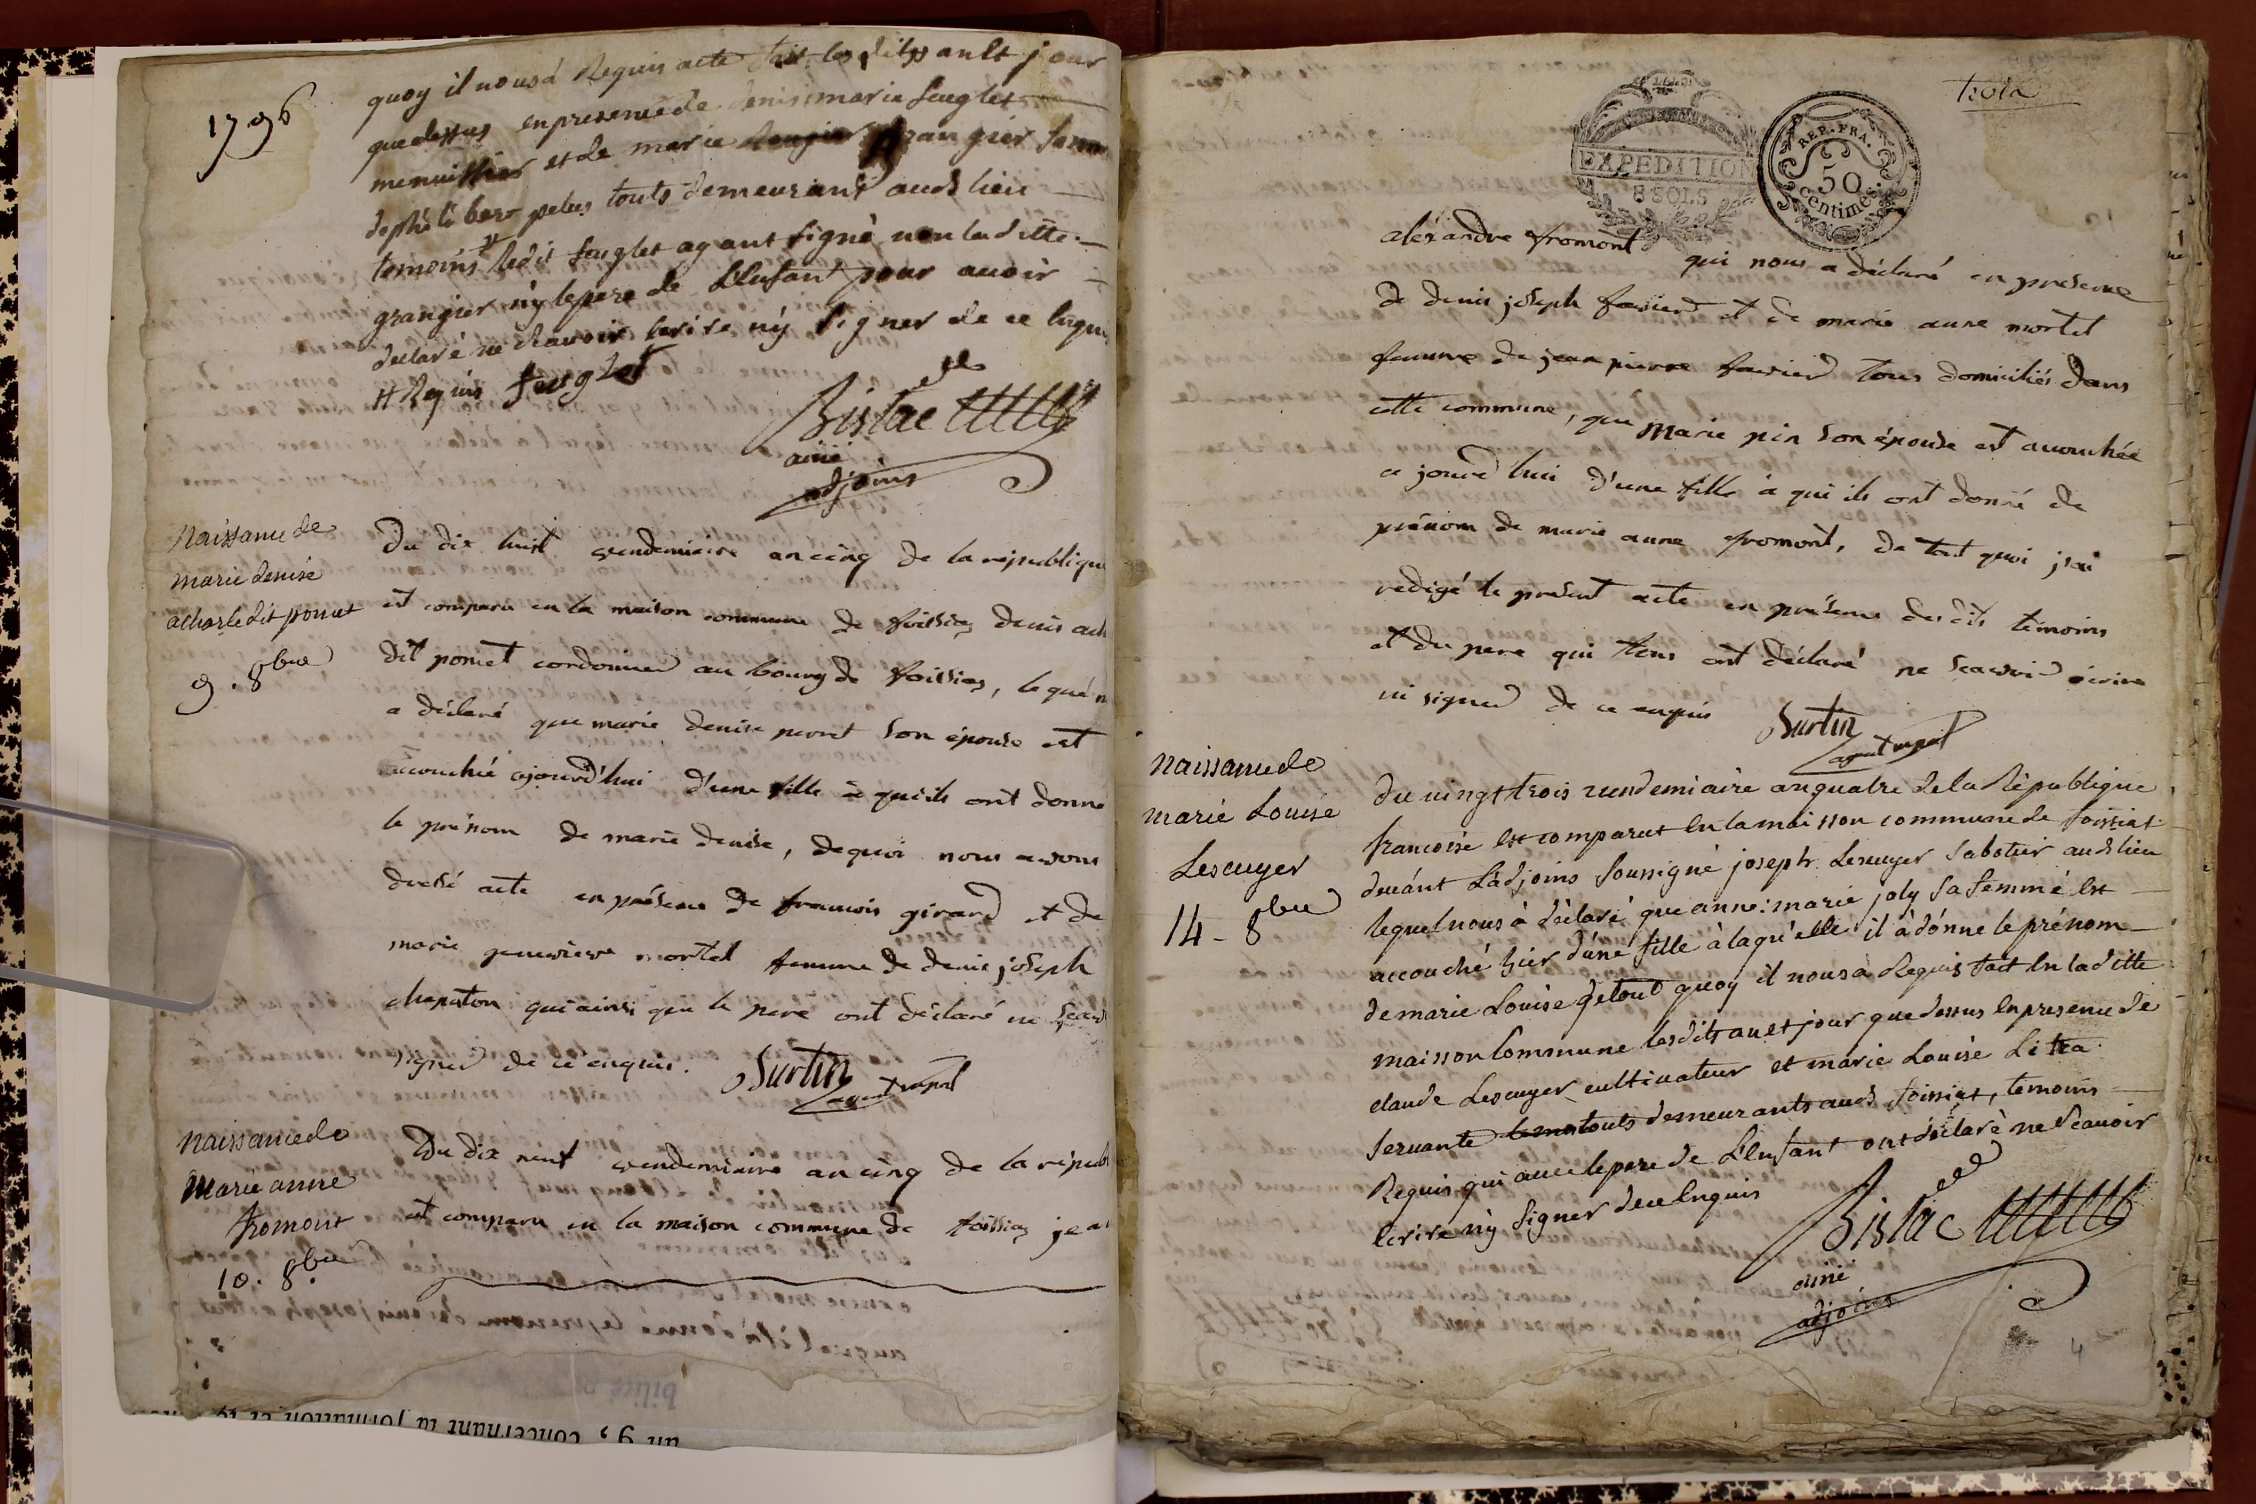 1796
quoy il nous à Requis acte fait les dits ans et jour
que dessus en presence de denis marie feuglet
menuissier et de marie grangier femme
de phélibert pelus touts demeurant auds lieu
temoins ledit feuglet ayant signé non laditte
grangier n'y le pere de L'Enfant pour avoir
declaré ne scavoir Ecrire n'y signer de ce Enquis
et Requis feuglet
Bissac
ainé
adjoins
Naissance de
marie denise
acharle dit ponet
9. 8bre
Du dix huit vendemiaire an cinq de la republique
est comparu en la maison commune de foissia denis ach
dit ponet cordonnier au bourg de foissia, lequel n
a déclaré que marie denise perret son épouse est
accouchée ajourd'hui d'une fille à qui ils ont donné
le prénom de marie denise, de quoi nous avons
dressé acte en présence de francois girard et de
marie genevieve mortel femme de denis joseph
chapaton qui ainsi que le pere ont déclaré ne scav
signer de ce enquis. Surtin
agent mpal
Naissance de
Marie anne
fromont
10. 8bre
Du dix neuf vendemiaire an cinq de la républ
est comparu en la maison commune de foissia jean
trois
EXPEDITION
8 SOLS
REP. FRA.
50
Centimes.
aléxandre fromont qui nous a déclaré en presence
de denis joseph favier et de marie anne mortel
femme de jean pierre favier tous domiciliés dans
cette commune, que Marie pin son épouse est accouchée
ce jourd'hui d'une fille à qui ils ont donné de
prénom de marie anne fromont, de tout quoi j'ai
redigé le présent acte en présence des dits témoins
et du pere qui tous ont déclaré ne scavoir écrire
ni signer de ce enquis Surtin
agent mpal
Naissance de
Marie Louise
Lescuyer
14 - 8bre
du vingt trois vendemiaire an quatre de la République
francoise est comparut En la maisson commune de foissiat
devant L'adjoins soussigné joseph Lescuyer sabotier auds lieu
lequel nous à déclaré que anne: marie joly sa femme Est
accouché hier d'une fille à laqu'elle il à donné le prénom
de marie Louise de tout quoy il nous à Requis fait En laditte
maisson Commune lesdits an et jour que dessus En presence de
claude Lescuyer cultivateur et marie Louise
servante touts demeurants auds foissiat, temoins
Requis qui avec le pere de L'Enfant ont déclaré ne scavoir
Ecrire n'y signer de ce Enquis
Bissac
ainé
adjoins
4
an 9, concernant la formation et le